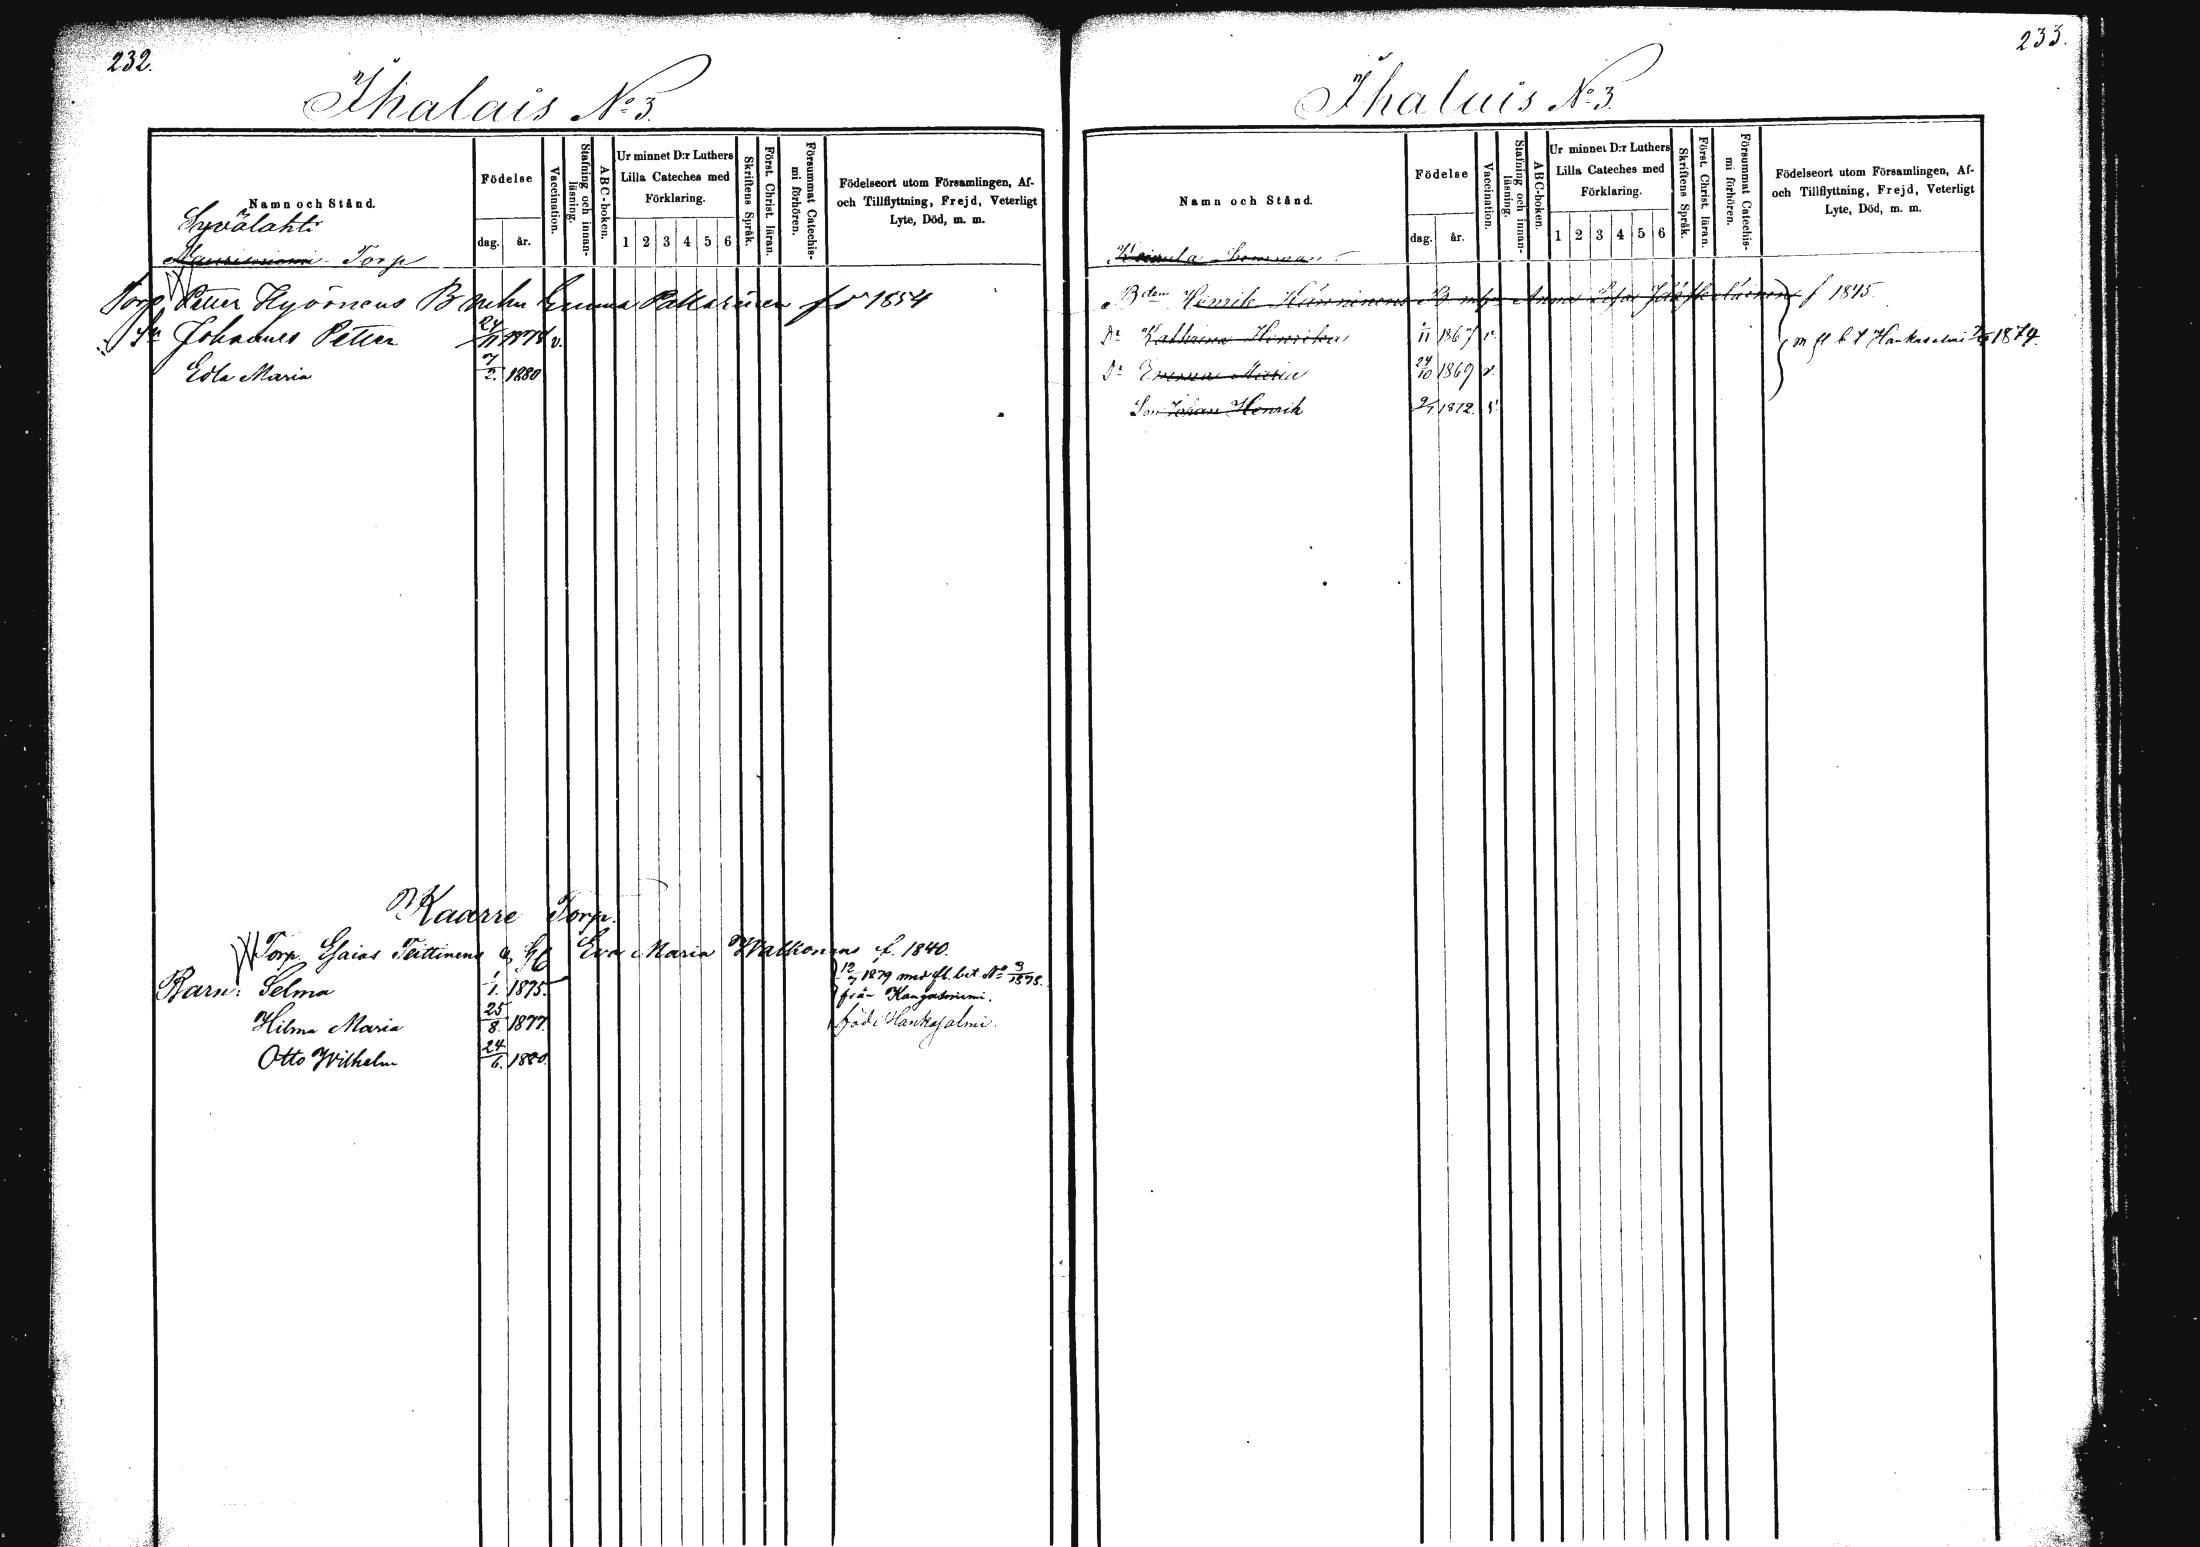 232.
Ihalais No 3.
Namn och Stånd.
Födelse
dag.
år.
Vaccination.
Stafning och innan-
läsning.
ABC-boken.
Ur minnet D:r Luthers
Lilla Cateches med
Förklaring.
1 2 3 4 5 6
Skriftens Språk.
Först. Christ. läran.
Försummat Catechis-
mi förhören.
Födelseort utom Församlingen, Af-
och Tillflyttning, Frejd, Veterligt
Lyte, Död, m. m.
Syvälahti
Torp
Torp Petter Hyöinens Emma 1854
Johannes Petter 24/11 v.
Edla Maria 7/2. 1880
Kaarre Torp.
Torp. Esaias Teittinens Eva Maria f. 1840.
Barn: Selma 1/1. 1875. 12/7 1879 med fl. bet No 3/1878.
från Kangasniemi.
Hilma Maria 25/8. 1877. född i Hankasalmi.
Otto Wilhelm 24/6. 1880.
233.
Ihalais No 3.
Namn och Stånd.
Födelse
dag.
år.
Vaccination.
Stafning och innan-
läsning.
ABC-boken.
Ur minnet D:r Luthers
Lilla Cateches med
Förklaring.
1 2 3 4 5 6
Skriftens Språk.
Först. Christ. läran.
Försummat Catechis-
mi förhören.
Födelseort utom Församlingen, Af-
och Tillflyttning, Frejd, Veterligt
Lyte, Död, m. m.
Bden Henrik Anna f 1845
Dr Kathrina Henrika 1867 v. Hankasalmi 1874.
Dr Maria 24/10 1869 v.
Son Johan Henrik 1872.